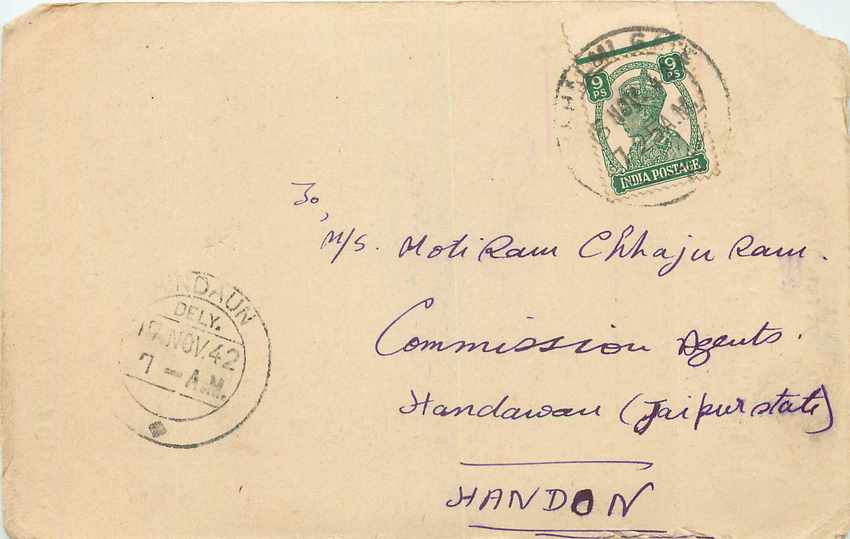 9 PS 9 PS
INDIA POSTAGE
NOV
A.M.
To,
M/S. Moti Ram Chhaju Ram.
Commission Agents.
Handawan (Jaipur state)
HANDON
NDAUN
DELY.
NOV.42
7 — A.M.